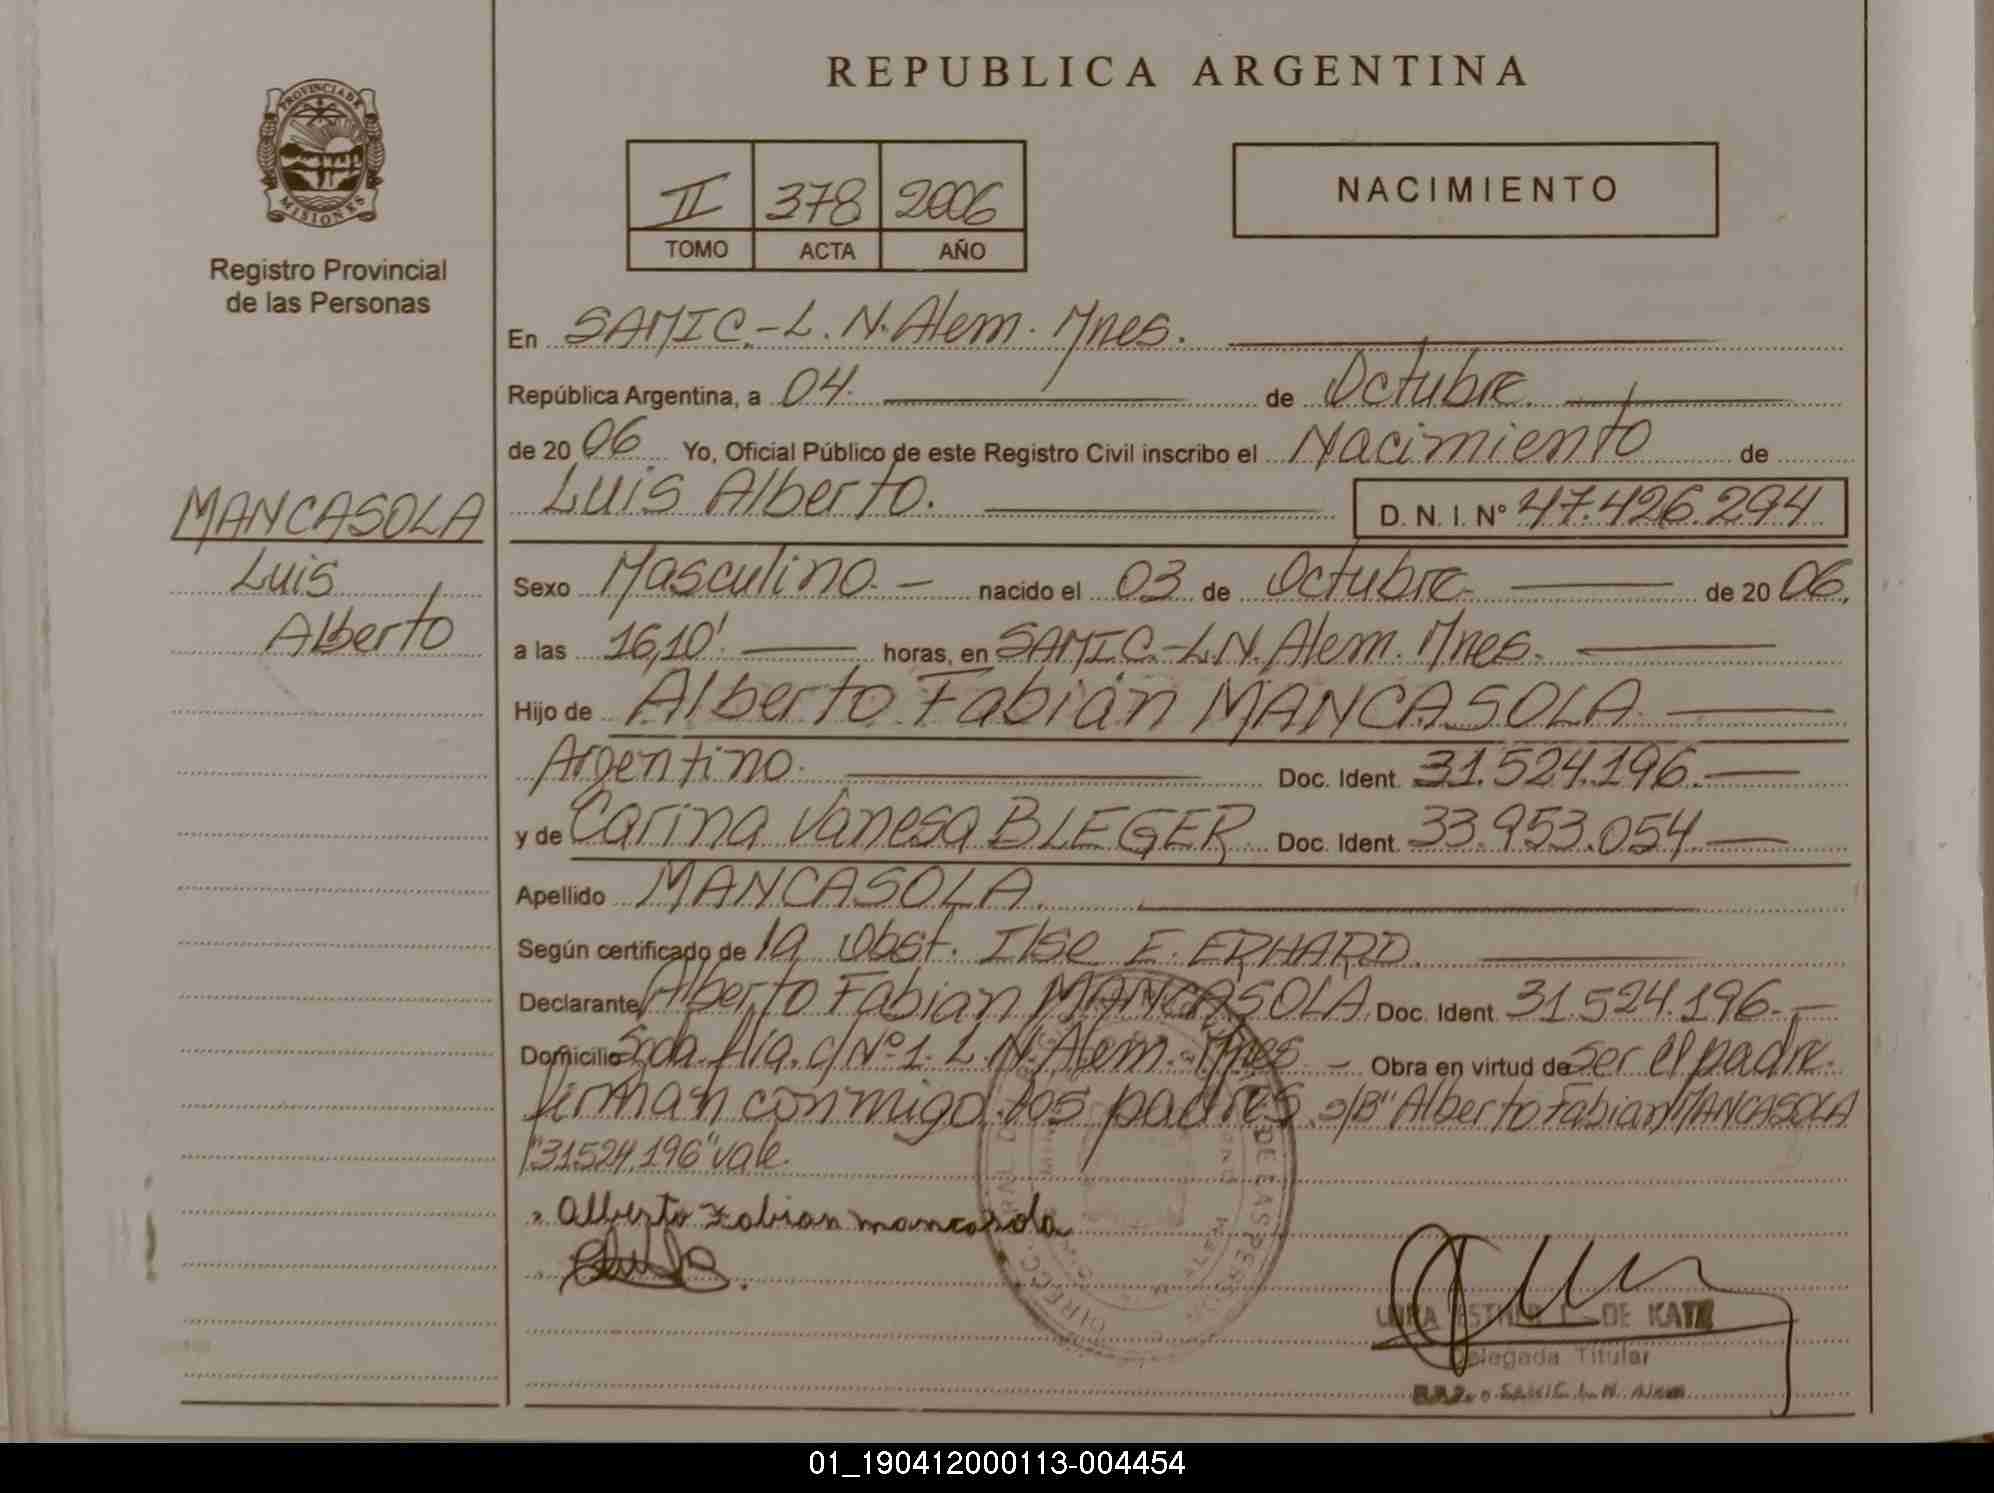 REPUBLICA ARGENTINA
PROVINCIA DE
MISIONES
Registro Provincial
de las Personas
II 378 2006
TOMO ACTA AÑO
NACIMIENTO
En SAMIC.-L.N.Alem. Mnes.
República Argentina, a 04. de Octubre.
de 20 06 Yo, Oficial Público de este Registro Civil inscribo el Nacimiento de
Luis Alberto. D. N. I. Nº 47.426.294
MANCASOLA
Luis
Alberto
Sexo Masculino. - nacido el 03 de Octubre. de 20 06.
a las 16,10' horas, en SAMIC.-L.N.Alem. Mnes.
Hijo de Alberto Fabián MANCASOLA
Argentino. Doc. Ident. 31.524.196.
y de Carina Vanesa BLEGER Doc. Ident. 33.953.054.
Apellido MANCASOLA.
Según certificado de la Obst. Ilse E. ERHARD.
Declarante Alberto Fabian MANCASOLA Doc. Ident 31.524.196.-
Domicilio c/Nº1. L.N.Alem. Mnes. - Obra en virtud de ser el padre.
Firman conmigo los padres. s/B" Alberto Fabian MANCASOLA
"31524.196" vale.
Alberto Fabian mancasola
ESTHER DE KATZ
Delegada Titular
SAMIC L. N. Alem
01_190412000113-004454